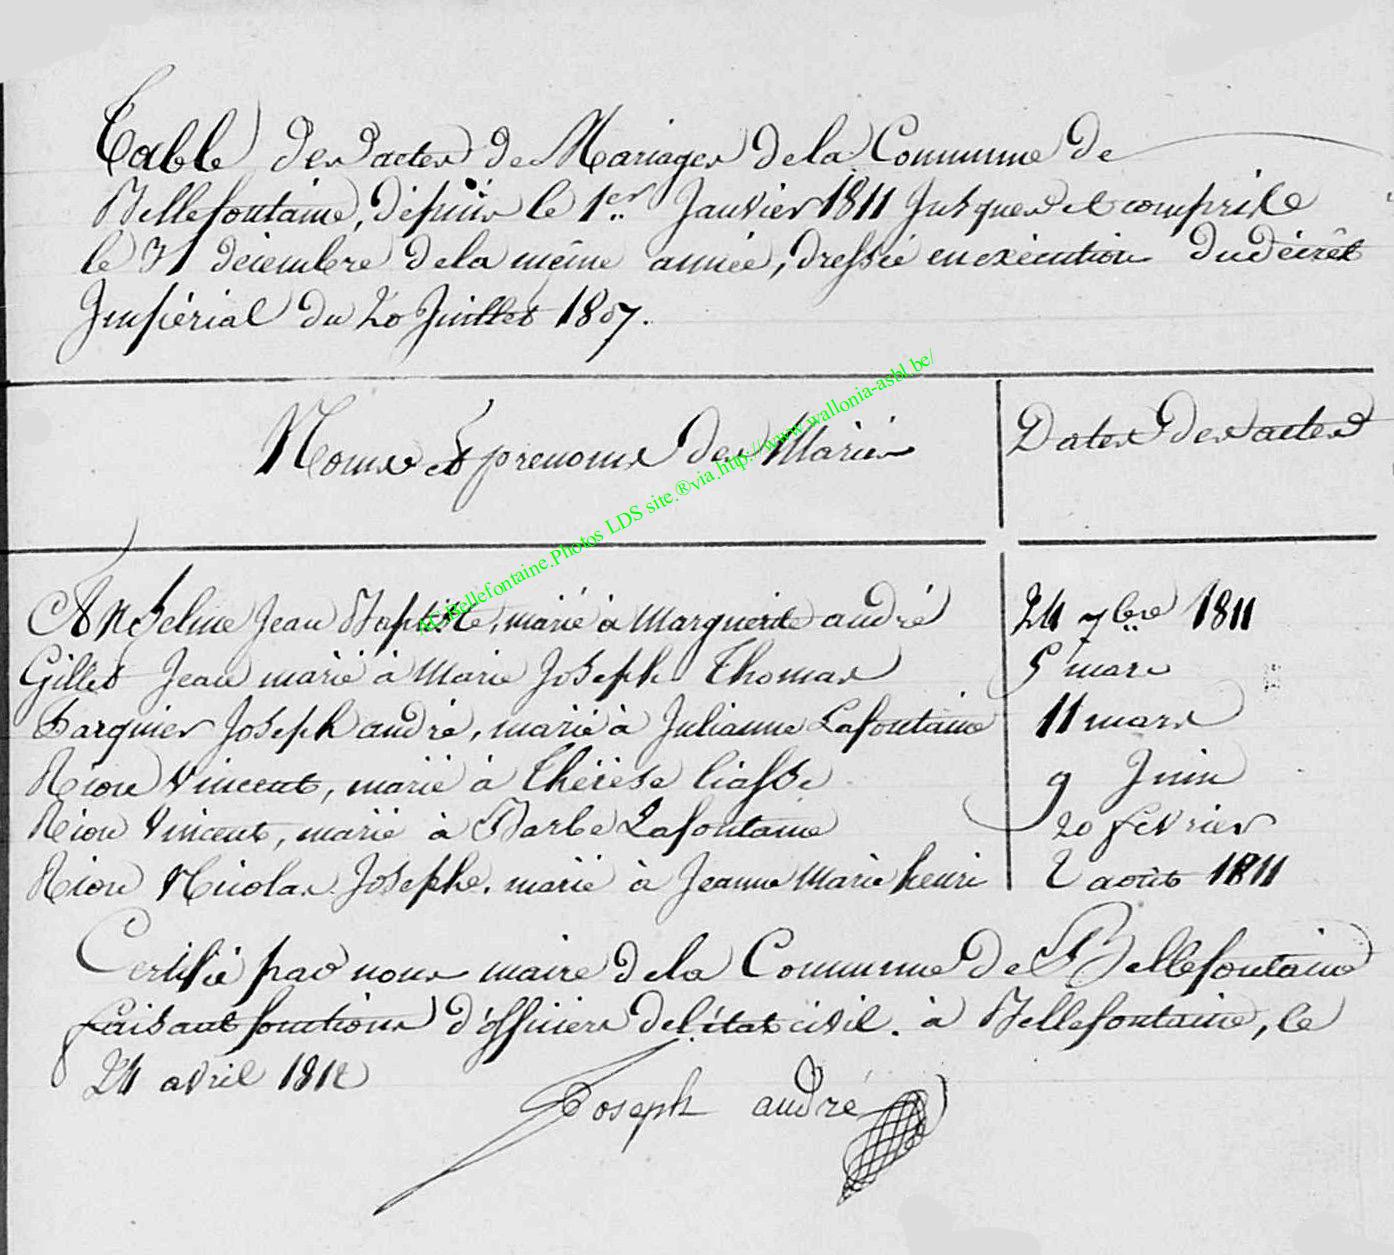 Table des actes de Mariages de la Commune de
Bellefontaine, dépuis le 1er Janvier 1811 Jusques et comprise
le 31 décembre de la même année, dressée en exécution du décrèt
Impérial du 20 Juillet 1807.
Noms et prenoms des Mariés
Dates des actes
AC.Bellefontaine.Photos LDS site.®via.http://www.wallonia-asbl.be/
Anselme Jean Baptiste, marié à Marguerite andré 24 7bre 1811
Gillet Jean marié à Marie Joseph Thomas 5 mars
Joseph andré, marié à Julianne Lafontaine 11 mars
Rion Vincent, marié à Thérèse liasse 9 Juin
Rion Vincent, marié à Barbe Lafontaine 20 février
Rion Nicolas Josephe. marié à Jeanne Marie henri 2 août 1811
Certifié par nous maire de la Commune de Bellefontaine
faisant fonctions d'officiers de l'état civil. à Bellefontaine, le
24 avril 1812
Joseph andré